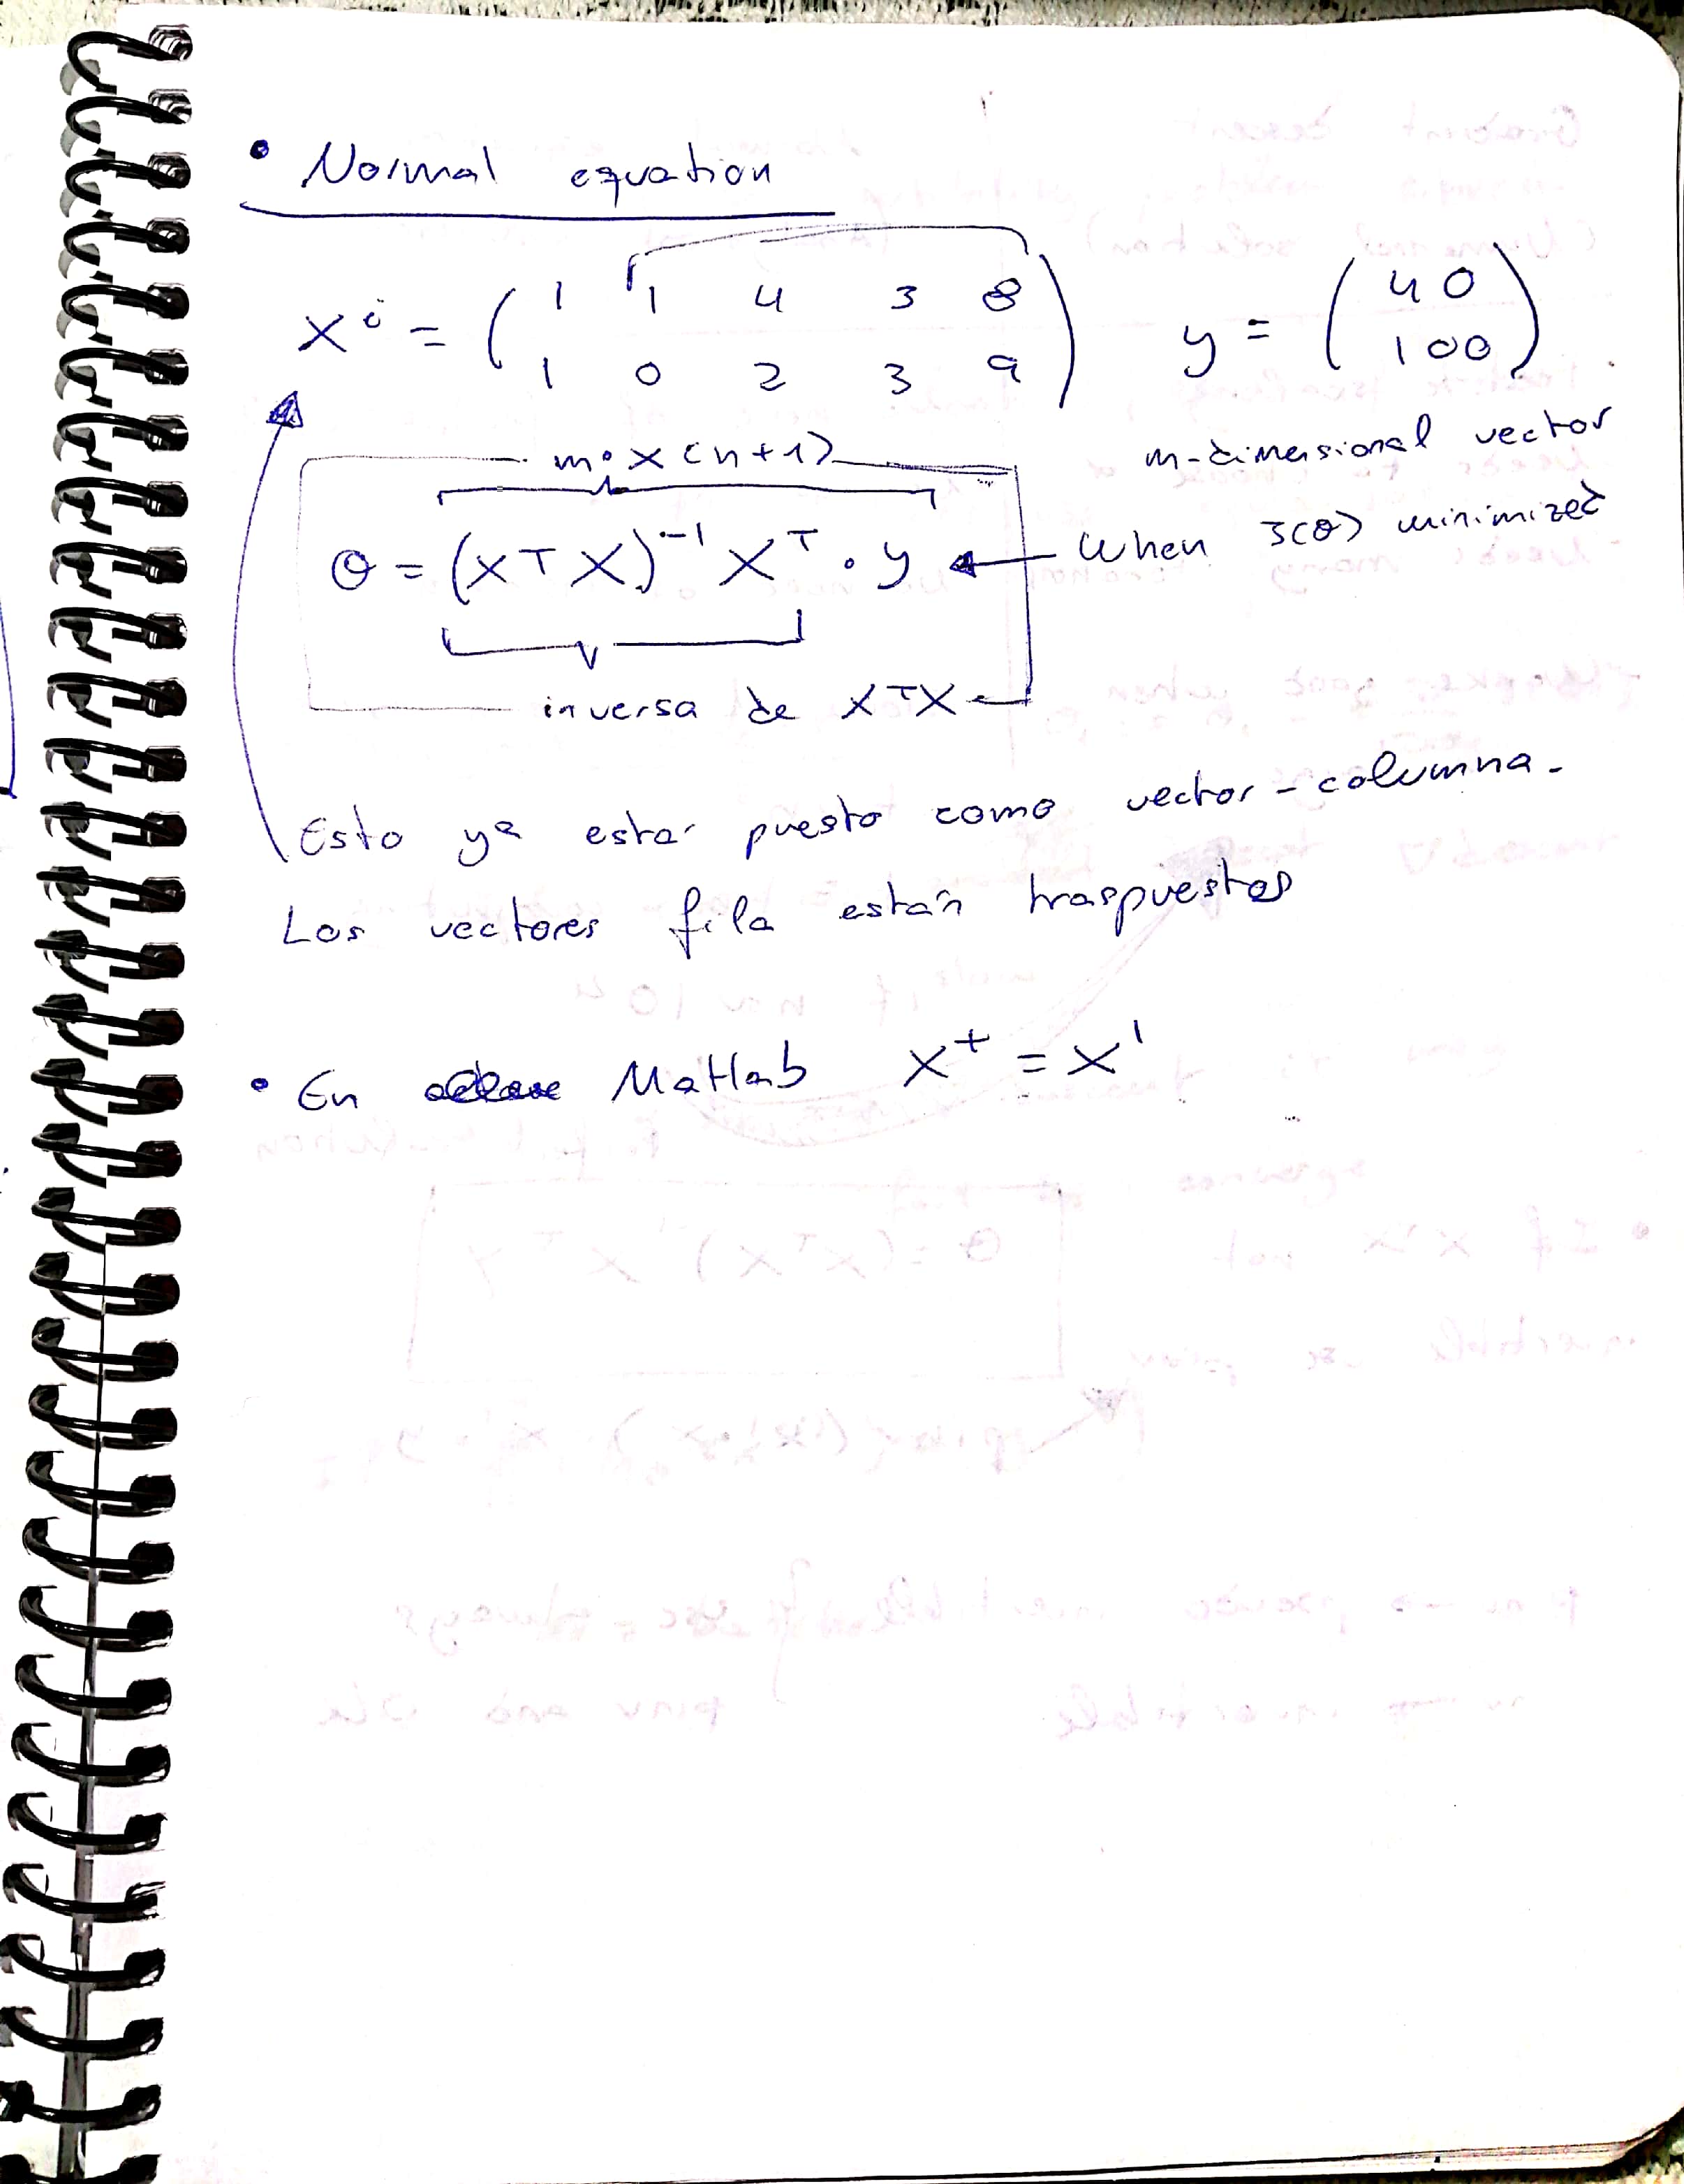 • Normal equation
xⁱ = ( 1 1 4 3 8 ) y = ( 40 )
( 1 0 2 3 9 ) ( 100 )
m-dimensional vector
m · x (n+1)
θ = (x^T x)^-1 x^T · y ← When J(θ) minimized
inversa de x^T x
Esto ya estar puesto como vector-columna.
Los vectores fila están traspuestos
• En Matlab x^t = x'